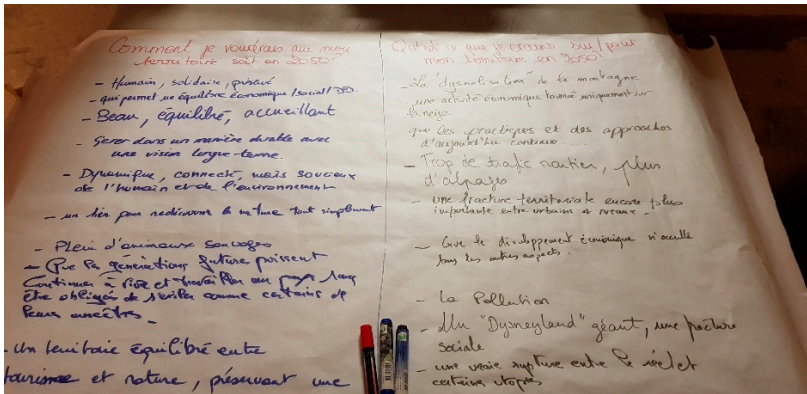 Comment je voudrais que mon
territoire soit en 2050?
- Humain, solidaire, préservé
- qui permet un équilibre économique/social/DD.
- Beau, équilibré, accueillant
- Gérer dans une manière durable avec
une vision longue-terme.
- Dynamique, connecté, mais soucieux
de l'humain et de l'environnement
- un lieu pour redécouvrir la nature tout simplement
- Plein d'animaux sauvages
- Que les générations future puissent
Continuer à vivre et travailler au pays sans
être obligés de s'exiler comme certains de
leurs ancêtres.
- Un territoire équilibré entre
tourisme et nature, préservant une
Qu'est ce que je crains sur/pour
mon territoire en 2050?
- La "dysneilisation" de la montagne
- une activité économique tourné uniquement sur
la neige
que les pratiques et des approches
d'aujourd'hui continue....
- Trop de trafic routier, plus
d'alpages
- une fracture territoriale encore plus
importante entre urbains et ruraux.
- Que le développement économique n'occulte
tous les autres aspects.
- La Pollution
- Un "Dysneyland" géant, une fracture
sociale
- une vraie rupture entre le réel et
certaines utopies